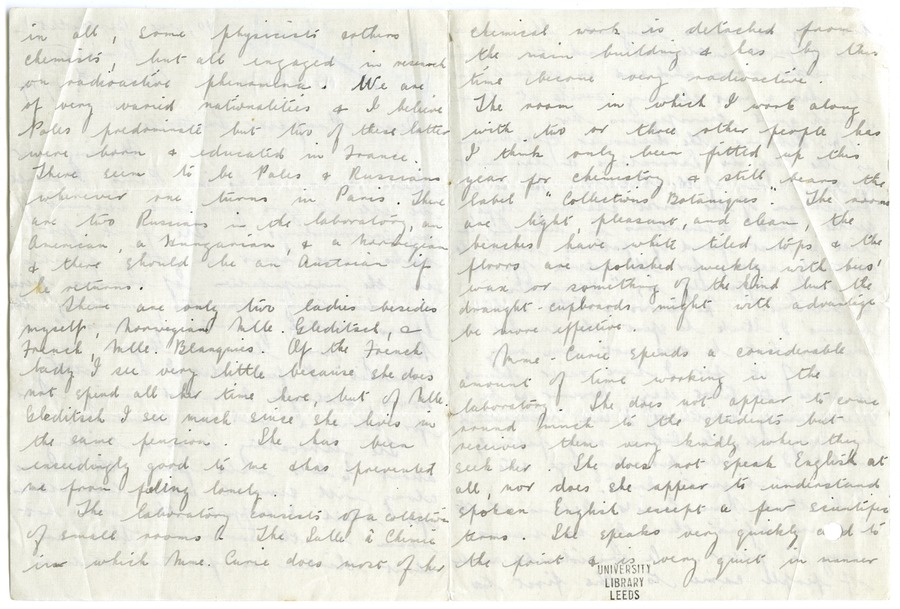 in all, some physicists others
chemists, but all engaged in research
on radioactive phenomena. We are
of very varied nationalities & I believe
Poles predominate but two of these latter
were born & educated in France.
There seem to be Poles & Russians
wherever one turns in Paris. There
are two Russians in the laboratory, an
American, a Hungarian, & a Norwegian
& there should be an Austrian if
he returns.
There are only two ladies besides
myself, Norwegian Mlle. Gleditsch, &
French, Mlle. Blanquies. Of the French
lady I see very little because she does
not spend all her time here, but of Mlle.
Gleditsch I see much since she lives in
the same pension. She has been
exceedingly good to me & has prevented
me from feeling lonely.
The laboratory consists of a collection
of small rooms. The Salle à Chimie
in which Mme. Curie does most of her
chemical work is detached from
the main building & has by this
time become very radioactive.
The room in which I work along
with two or three other people has
I think only been fitted up this
year for chemistry & still bears the
label "Collections Botaniques". The rooms
are light, pleasant, and clean, the
benches have white tiled tops & the
floors are polished weekly with bees'
wax or something of the kind but the
draught-cupboards might with advantage
be more effective.
Mme. Curie spends a considerable
amount of time working in the
laboratory. She does not appear to come
round much to the students but
receives them very kindly when they
seek her. She does not speak English at
all, nor does she appear to understand
spoken English except a few scientific
terms. She speaks very quickly and to
the point & is very quiet in manner
UNIVERSITY
LIBRARY
LEEDS